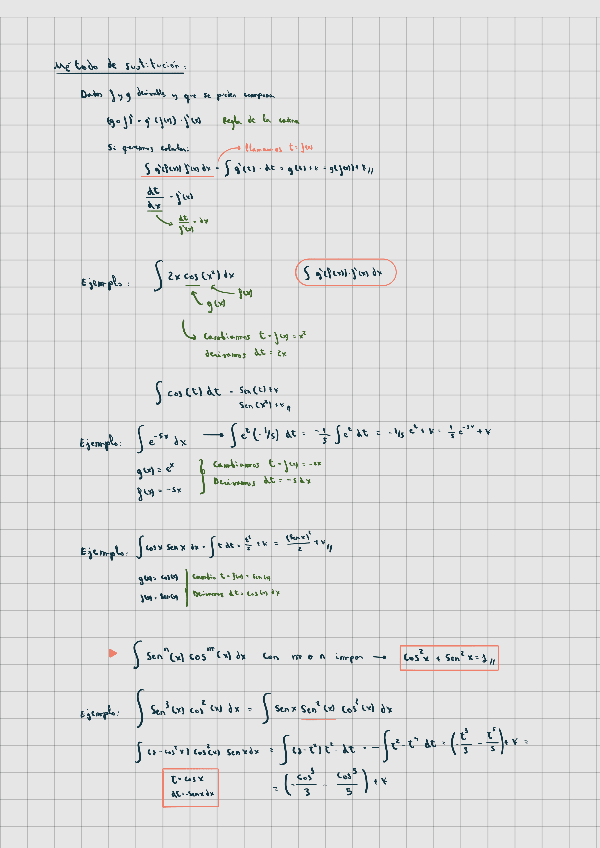 Método de sustitución:
Dados f y g derivables y que se pueden componer
(g∘f)' = g'(f(x)) · f'(x) Regla de la cadena
Si queremos calcular: llamamos t = f(x)
∫ g'(f(x)) f'(x) dx = ∫ g'(t) · dt = g(t) + k = g(f(x)) + k //
dt/dx = f'(x)
dt/f'(x) = dx
Ejemplo: ∫ 2x cos(x²) dx ∫ g'(f(x)) · f'(x) dx
f(x)
g(x)
Cambiamos t = f(x) = x²
Derivamos dt = 2x
∫ cos(t) dt = Sen(t) + k
Sen(x²) + k //
Ejemplo: ∫ e^-5x dx → ∫ e^t (-1/5) dt = -1/5 ∫ e^t dt = -1/5 e^t + k = -1/5 e^-5x + k
g(x) = e^x Cambiamos t = f(x) = -5x
f(x) = -5x Derivamos dt = -5dx
Ejemplo: ∫ cosx senx dx = ∫ t dt = t²/2 + k = (senx)²/2 + k //
g(x) = cos(x) Cambio t = f(x) = sen(x)
f(x) = sen(x) Derivamos dt = cos(x) dx
∫ Sen^n (x) cos^m (x) dx Con m o n impar → Cos²x + Sen²x = 1 //
Ejemplo: ∫ Sen³(x) cos²(x) dx = ∫ Senx Sen²(x) Cos²(x) dx
∫ (1-cos²x) cos²(x) senx dx = ∫ (1-t²) t² · dt = -∫ t² - t⁴ dt = (-t³/3 - t⁵/5) + k =
t = cosx
dt = -senx dx
= (-cos³/3 - cos⁵/5) + k